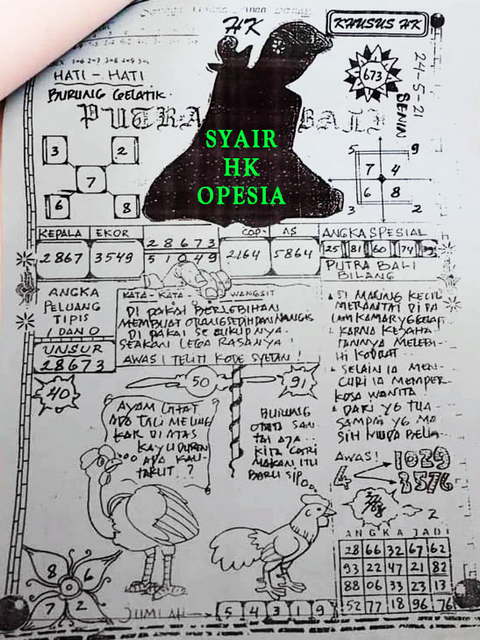 HK
KHUSUS HK
HATI - HATI
BURUNG GELATIK
673
24-5-21
SENIN
PUTRA BALI
SYAIR
HK
OPESIA
3 2
7
6 8
5 9
7 4
6 8
3 2
KEPALA EKOR
2867 3549
28673
51049
COP AS
2164 5864
ANGKA SPESIAL
25 81 60 74
PUTRA BALI
BILANG
ANGKA
PELUANG
TIPIS
1 DAN 0
UNSUR
28673
40
KATA - KATA WANGSIT
DI PAKAI BERLEBIHAN
MEMBUAT ORANG SEDIH DAN NANGIS
DI PAKAI SECUKUPNYA
SEAKAN LEGA RASANYA!
AWAS! TELITI KODE SYETAN!
SI MALING KECIL
KARNA
SELAIN IA MEN-
CURI IA MEMPER
KOSA WANITA
DARI YG TUA
SAMPAI YG MA
SIH MUDA BELIA
50
91
AYAM LIHAT
ADA TALI MELING
KAR DI ATAS
KAYU DURIAN
ADA KAU
TAKUT?
BURUNG
ONTA SAN
TAI AJA
KITA CARI
MAKAN ITU
BARU SIP
AWAS!
4
1029
3576
2
ANGKA JADI
28 66 32 67 62
93 22 47 21 82
88 06 33 23 13
52 77 18 96 76
8 6
7 2
JUMLAH
5 4 3 1 9